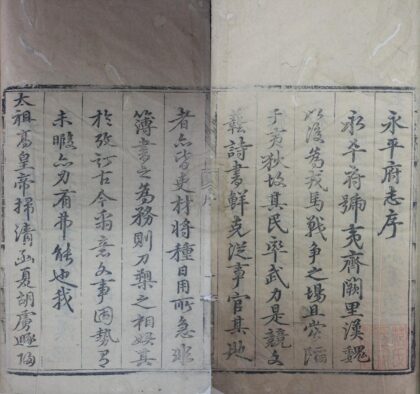 永平府志序
永平府號夷齊闕里漢魏
以後為戎馬戰爭之場且嘗陷
于夷狄故其民率武力是競文
藝詩書鮮克從事官其地
者亦皆吏材將種日用所急非
簿書之為務則刀槊之相娛其
於攷訂古今留意文事固勢有
未暇亦力有弗能也我
太祖高皇帝掃清函夏胡虜